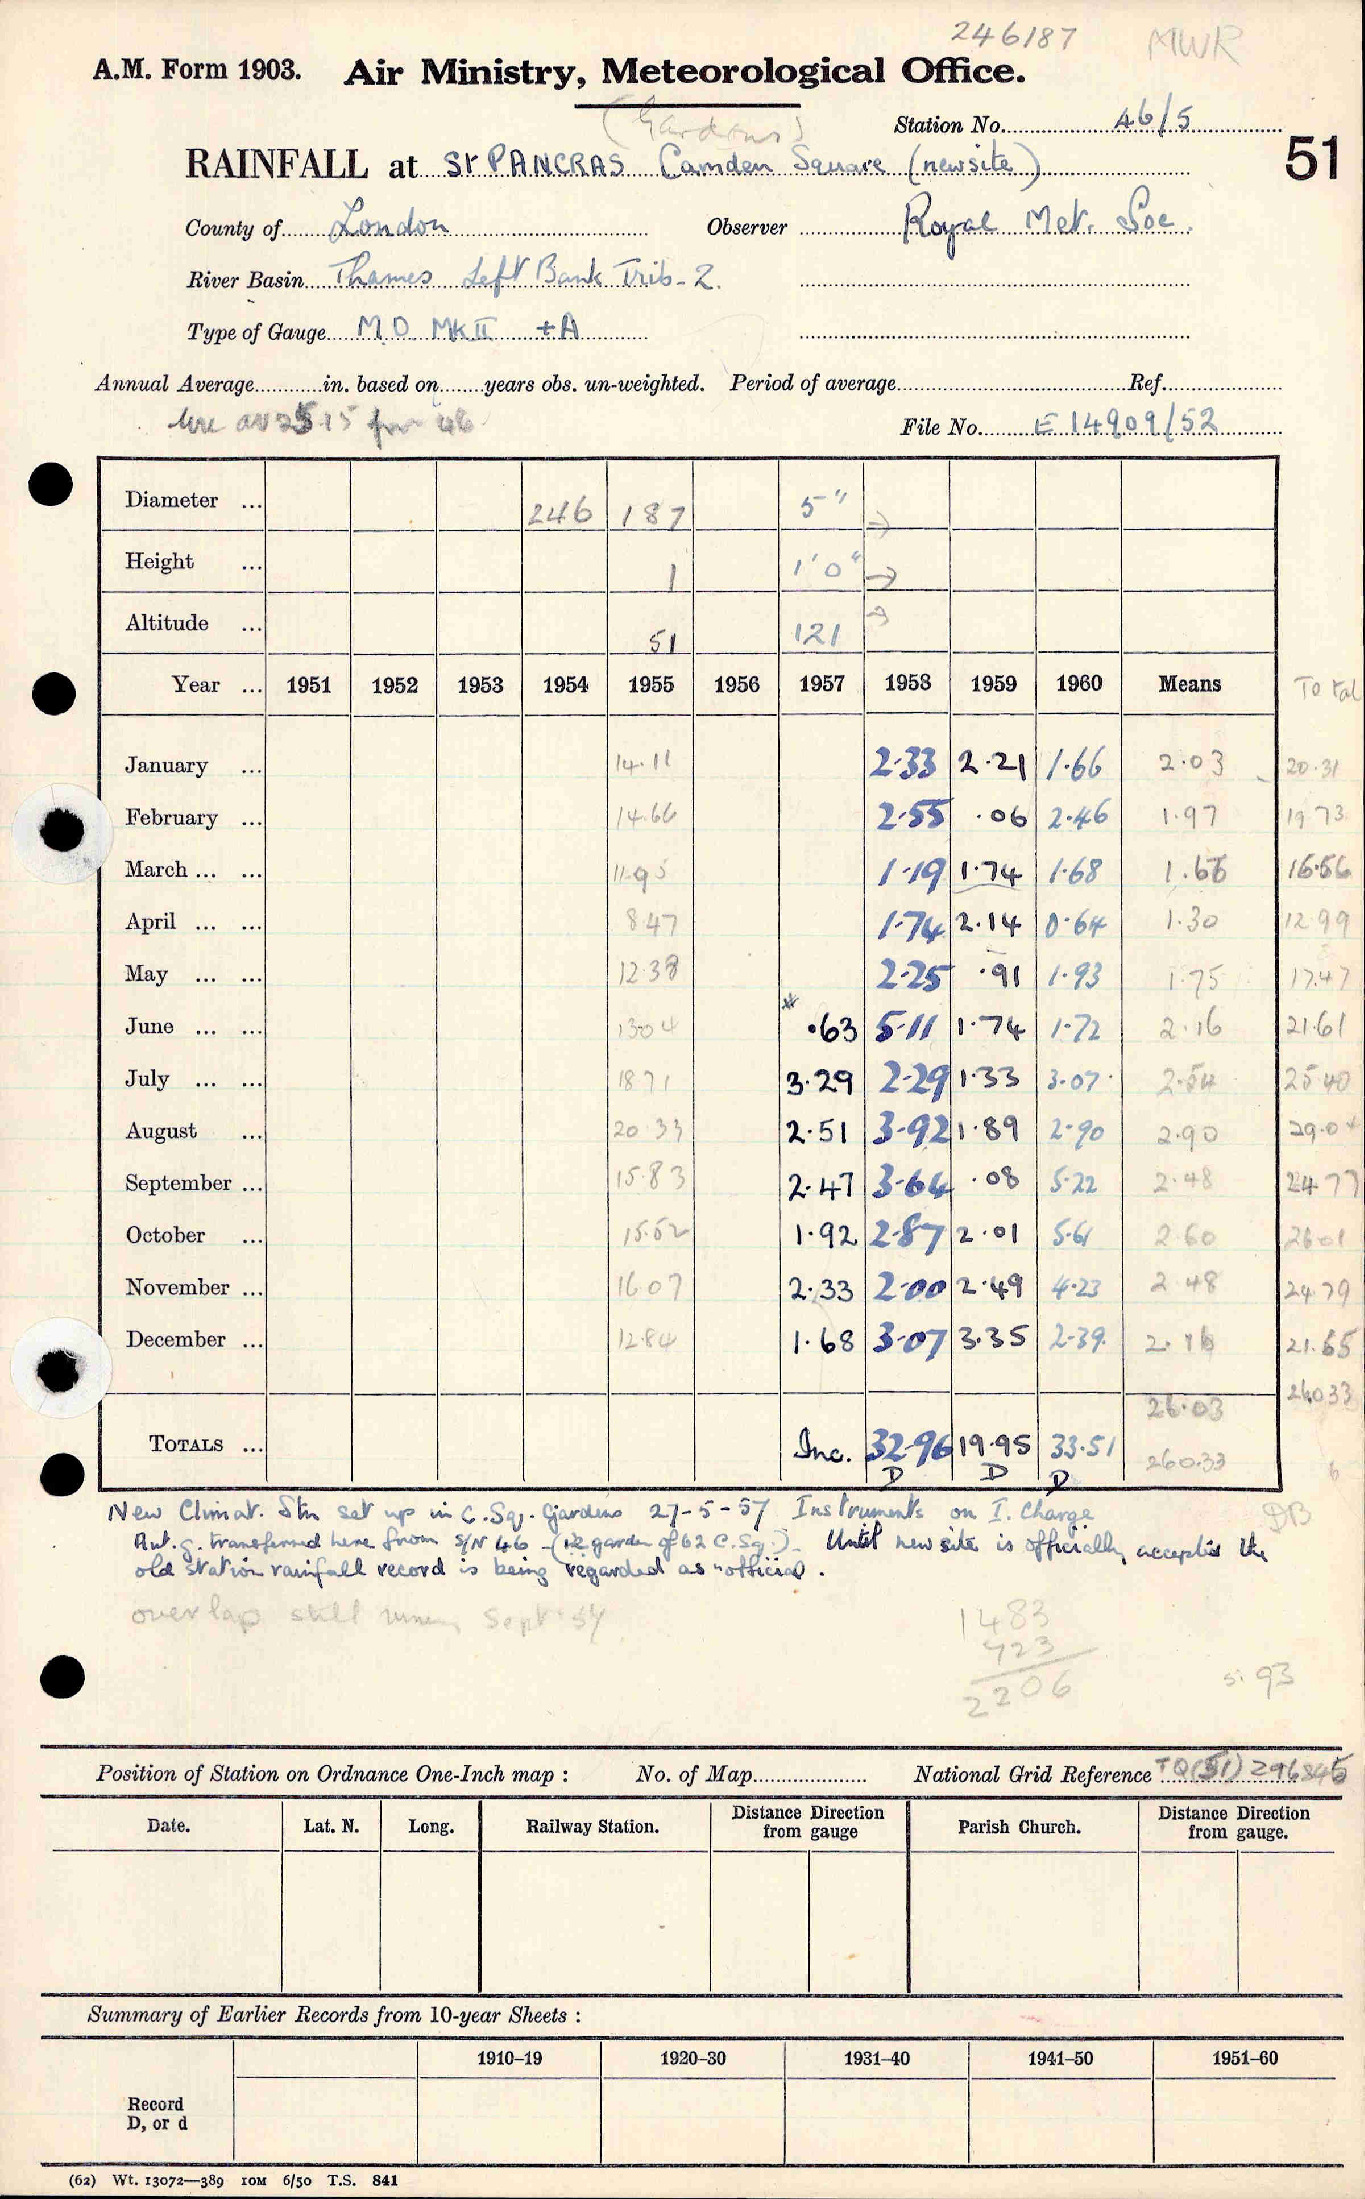 246187 MWR
A.M. Form 1903. Air Ministry, Meteorological Office.
(Gardens)
Station No. 46/5
51
RAINFALL at ST PANCRAS Camden Square (new site)
County of London Observer Royal Met. Soc.
River Basin Thames Left Bank Trib-2.
Type of Gauge M.O. Mk II +A
Annual Average in. based on years obs. un-weighted. Period of average Ref.
File No. E 14909/52
Diameter ... 246 187 5" →
Height ... 1 1'0" →
Altitude ... 51 121 →
Year ... 1951 1952 1953 1954 1955 1956 1957 1958 1959 1960 Means Total
January ... 14.11 2.33 2.21 1.66 2.03 20.31
February ... 14.66 2.55 .06 2.46 1.97 19.73
March ... ... 11.95 1.19 1.74 1.68 1.66 16.56
April ... ... 8.47 1.74 2.14 0.64 1.30 12.99
May ... ... 12.38 2.25 .91 1.93 1.75 17.47
June ... ... 13.04 * .63 5.11 1.74 1.72 2.16 21.61
July ... ... 18.71 3.29 2.29 1.33 3.07 2.54 25.40
August ... 20.33 2.51 3.92 1.89 2.90 2.90 29.04
September ... 15.83 2.47 3.64 .08 5.22 2.48 24.77
October ... 15.52 1.92 2.87 2.01 5.61 2.60 26.01
November ... 16.07 2.33 2.00 2.49 4.23 2.48 24.79
December ... 12.84 1.68 3.07 3.35 2.39 2.16 21.65
26.03 260.33
TOTALS ... Inc. 32.96 19.95 33.51 260.33
D D D
New Climat. Stn set up in C. Sq. Gardens 27-5-57 Instruments on I. Charge DB
Aut. g. transferred here from S/N 46 (in garden of 62 C. Sq.). Until new site is officially accepted the
old station rainfall record is being regarded as "official".
overlap still Sept 57
1483
723
2206
5.93
Position of Station on Ordnance One-Inch map : No. of Map National Grid Reference TQ(51) 296845
Date. Lat. N. Long. Railway Station. Distance Direction from gauge Parish Church. Distance Direction from gauge.
Summary of Earlier Records from 10-year Sheets :
1910–19 1920–30 1931–40 1941–50 1951–60
Record
D, or d
(62) Wt. 13072—389 10M 6/50 T.S. 841